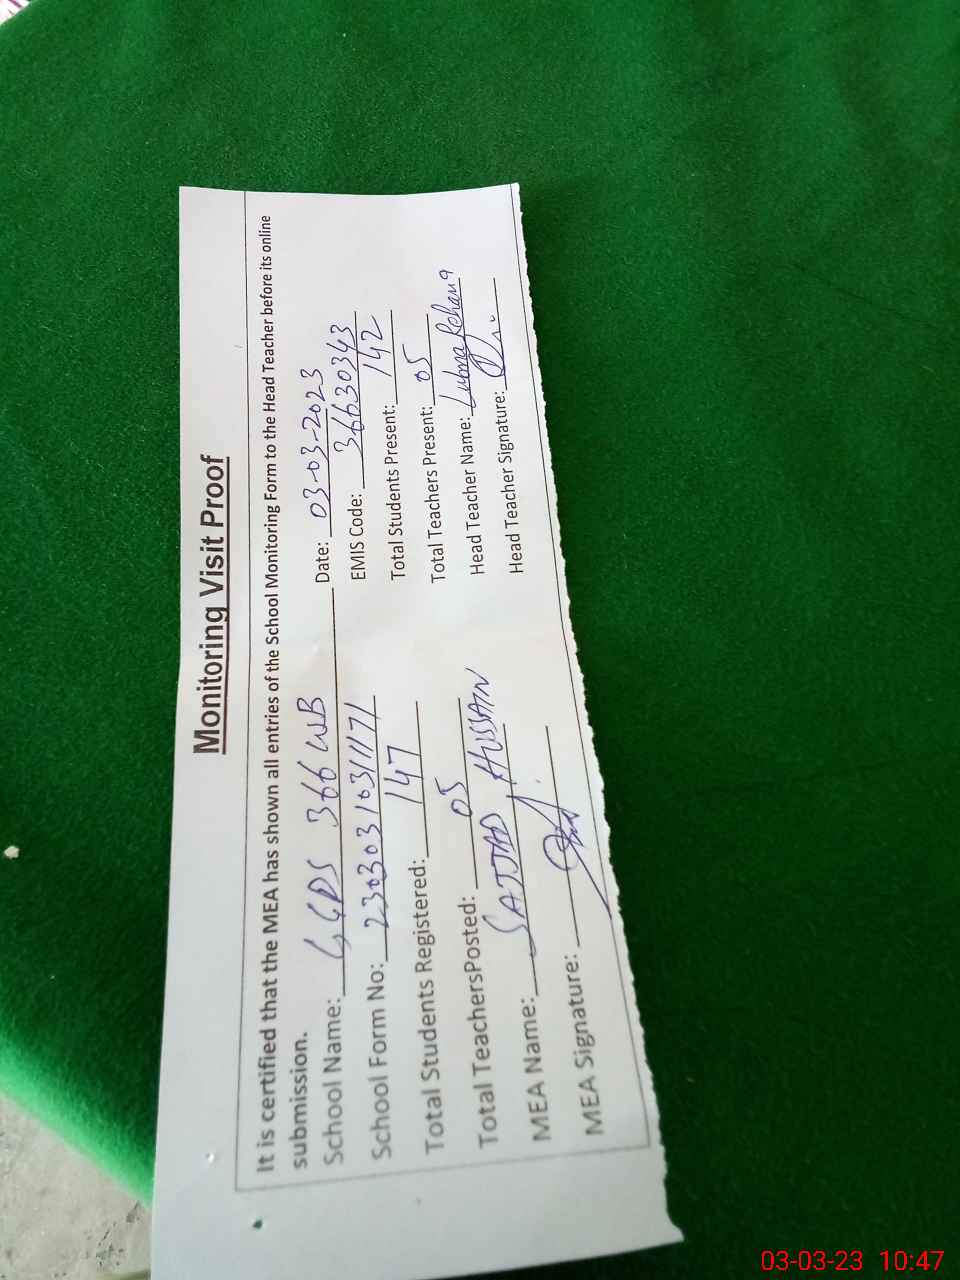 Monitoring Visit Proof
It is certified that the MEA has shown all entries of the School Monitoring Form to the Head Teacher before its online
submission.
School Name: GGPS 366 WB Date: 03-03-2023
School Form No: 23030310311171 EMIS Code: 36630343
Total Students Registered: 147 Total Students Present: 142
Total TeachersPosted: 05 Total Teachers Present: 05
MEA Name: SAJJAD HUSSAIN Head Teacher Name: Lubna Rehana
MEA Signature: Head Teacher Signature:
03-03-23 10:47